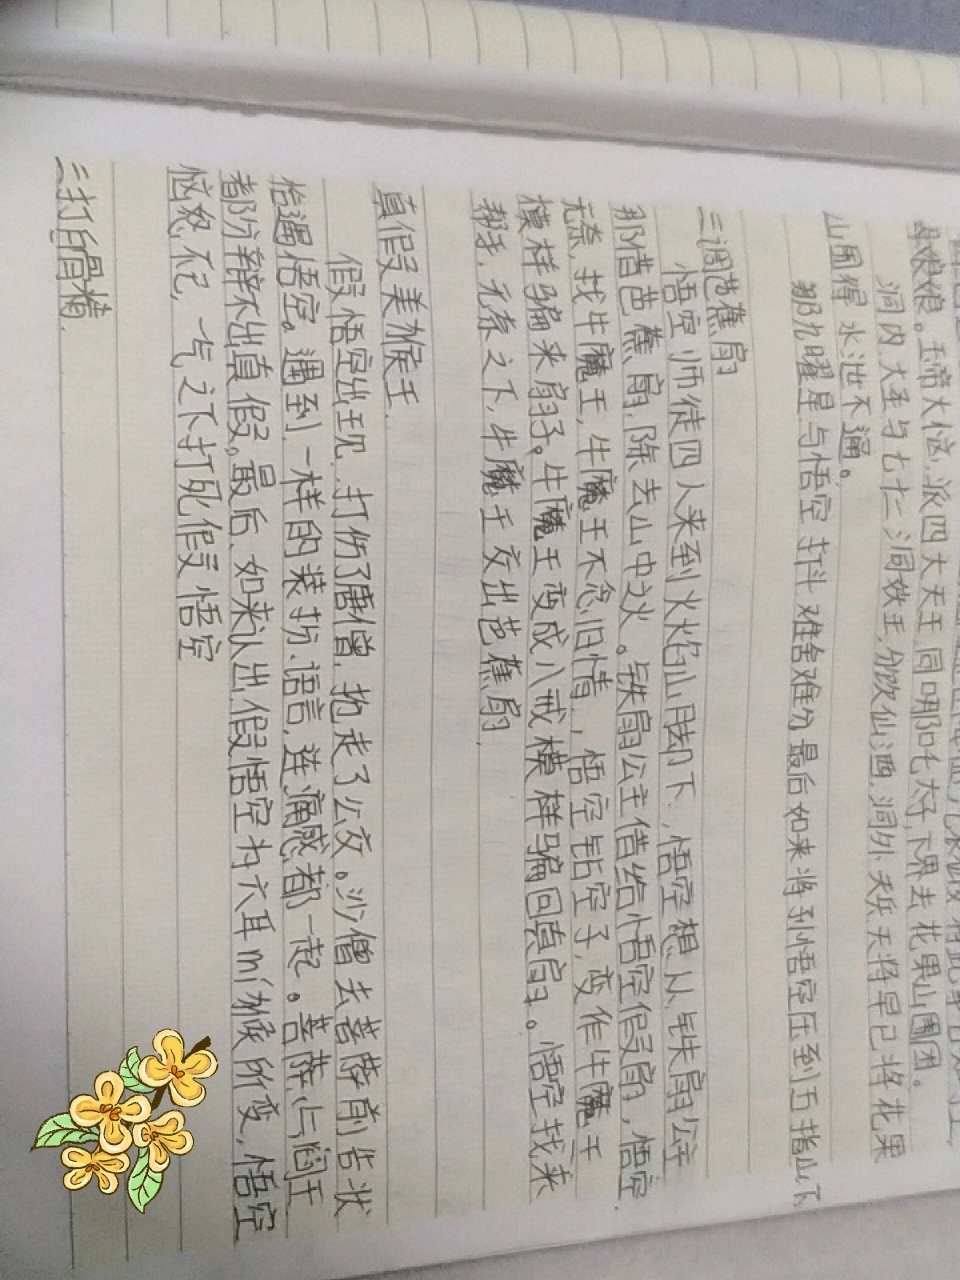 娘娘。玉帝大恼,派四大天王,同哪吒太子,下界去花果山围团。
洞内大圣与七十二洞妖王,分饮仙酒,洞外天兵天将早已将花果
山围得水泄不通。
那九曜星与悟空打斗难舍难分最后如来将孙悟空压到五指山下
三调芭蕉扇
悟空师徒四人来到火焰山脚下,悟空想从铁扇公主
那借芭蕉扇,除去山中火。铁扇公主借给悟空假扇,悟空
无奈,找牛魔王,牛魔王不念旧情,悟空钻空子,变作牛魔王
模样骗来扇子。牛魔王变成八戒模样骗回真扇。悟空找来
帮手,无奈之下,牛魔王交出芭蕉扇.
真假美猴王.
假悟空出现,打伤了唐僧,抱走了公文。沙僧去菩萨前告状
恰遇悟空。遇到一样的装扮、语言,连痛感都一起。菩萨,与阎王
都分辩不出真假,最后,如来认出假悟空为六耳mí猴所变,悟空
恼怒不已,一气之下打死假悟空
三打白骨精.